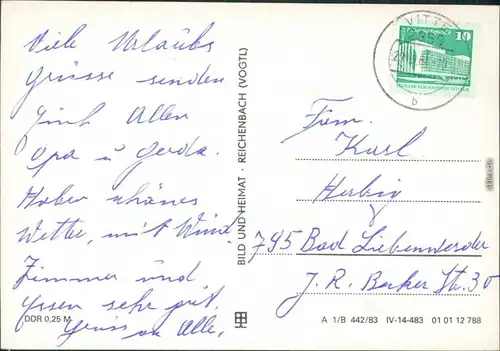 Viele Urlaubs
grüsse senden
Euch Allen
Opa u Gerda.
Haben schönes
Wetter, mit Wind
Zimmer und
Essen sehr gut.
Gruss an Alle.
DDR 0,25 M
BILD UND HEIMAT · REICHENBACH (VOGTL)
VITTE
b
10
Fam.
Karl
795 Bad Liebenwerda
J. R. Becker Str. 30
A 1/B 442/83 IV-14-483 01 01 12 788